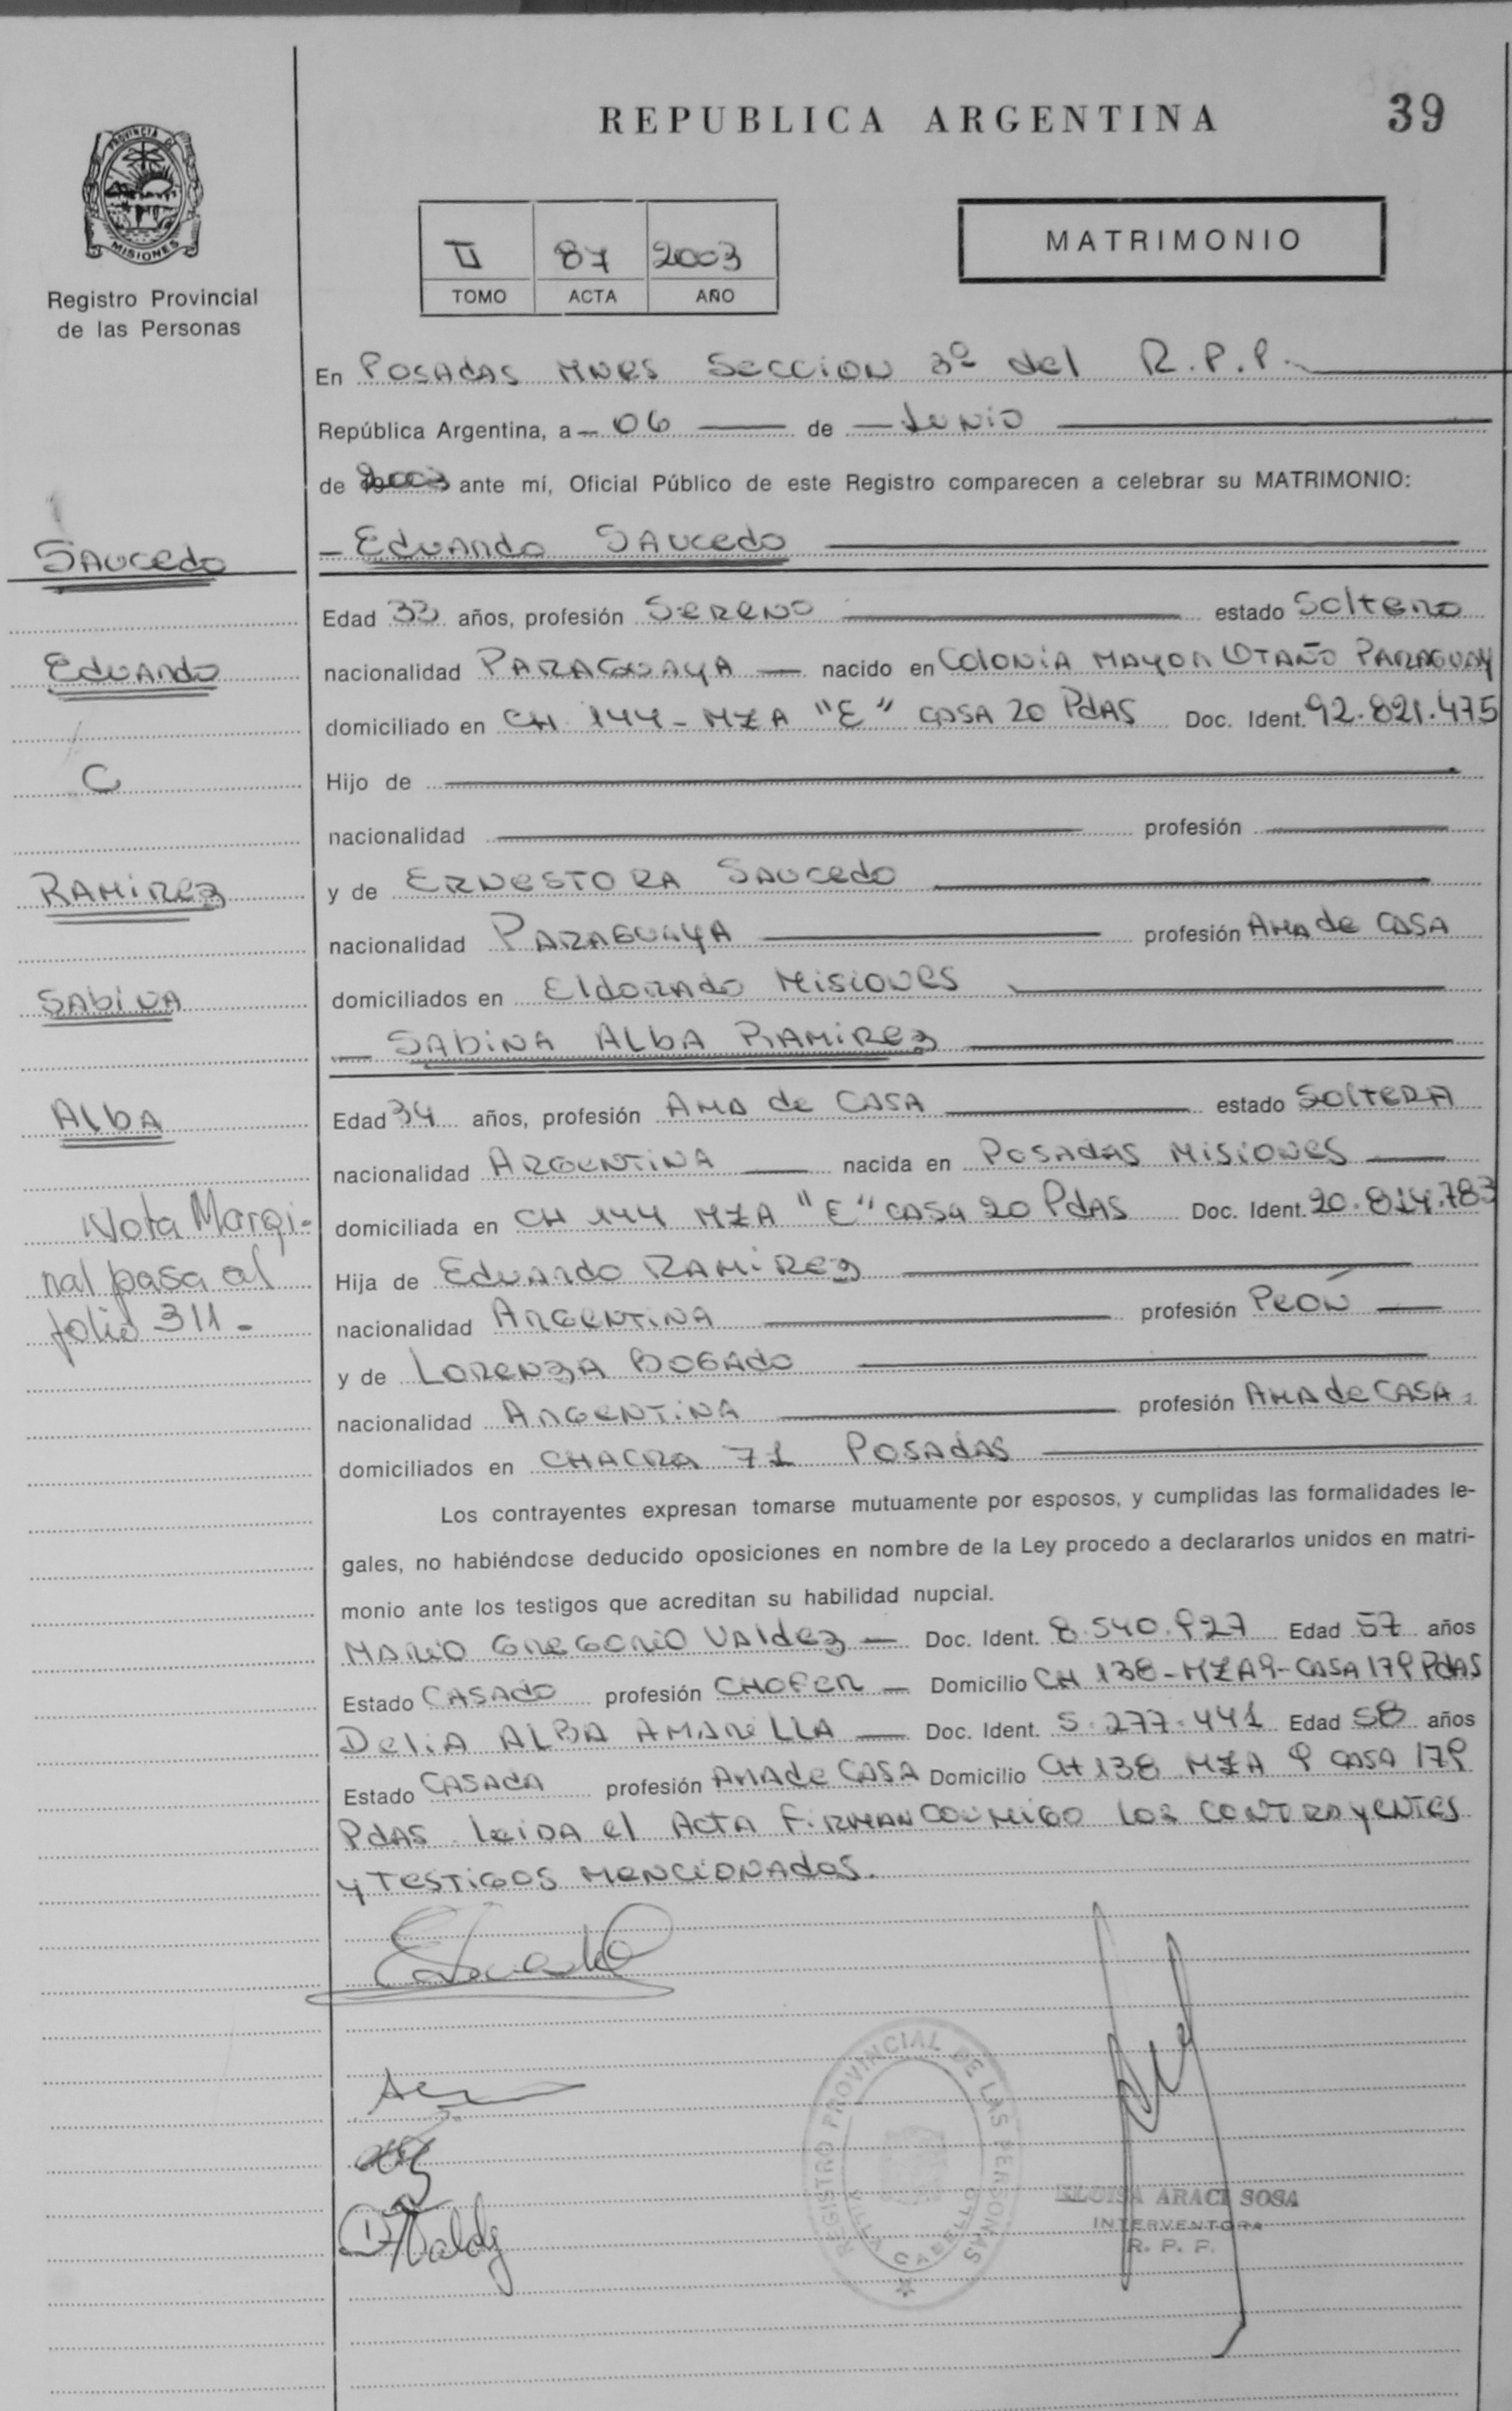 REPUBLICA ARGENTINA
39
PROVINCIA DE
MISIONES
Registro Provincial
de las Personas
II 87 2003
TOMO ACTA AÑO
MATRIMONIO
En POSADAS MNES SECCION 3º del R.P.P.
República Argentina, a 06 de Junio
de 2003 ante mí, Oficial Público de este Registro comparecen a celebrar su MATRIMONIO:
Eduardo Saucedo
Edad 33 años, profesión Sereno estado Soltero
nacionalidad PARAGUAYA nacido en Colonia Mayor Otaño Paraguay
domiciliado en CH 144 - MZA "E" CASA 20 PdAS Doc. Ident. 92.821.475
Hijo de
nacionalidad profesión
y de Ernestora Saucedo
nacionalidad PARAGUAYA profesión AMA de CASA
domiciliados en Eldorado Misiones
Sabina Alba Ramirez
Edad 34 años, profesión AMA de CASA estado SOLTERA
nacionalidad ARGENTINA nacida en Posadas Misiones
domiciliada en CH 144 MZA "E" CASA 20 PdAS Doc. Ident. 20.814.783
Hija de Eduardo Ramirez
nacionalidad ARGENTINA profesión Peón
y de Lorenza Bogado
nacionalidad ARGENTINA profesión AMA de CASA
domiciliados en CHACRA 71 POSADAS
Los contrayentes expresan tomarse mutuamente por esposos, y cumplidas las formalidades le-
gales, no habiéndose deducido oposiciones en nombre de la Ley procedo a declararlos unidos en matri-
monio ante los testigos que acreditan su habilidad nupcial.
Mario Gregorio Valdez Doc. Ident. 8.540.927 Edad 57 años
Estado CASADO profesión CHOFER Domicilio CH 138 - MZA 9 - CASA 179 PdAS
Delia ALBA AMARILLA Doc. Ident. 5.277.441 Edad 58 años
Estado CASADA profesión AMA de CASA Domicilio CH 138 MZA 9 CASA 179
PdAS. Leida el Acta firman conmigo los contrayentes
y testigos mencionados.
Saucedo
Eduardo
C
Ramirez
Sabina
Alba
Nota Margi-
nal pasa al
folio 311 -
REGISTRO PROVINCIAL DE LAS PERSONAS
VILLA CABELLO
ELOISA ARACI SOSA
INTERVENTORA
R. P. P.